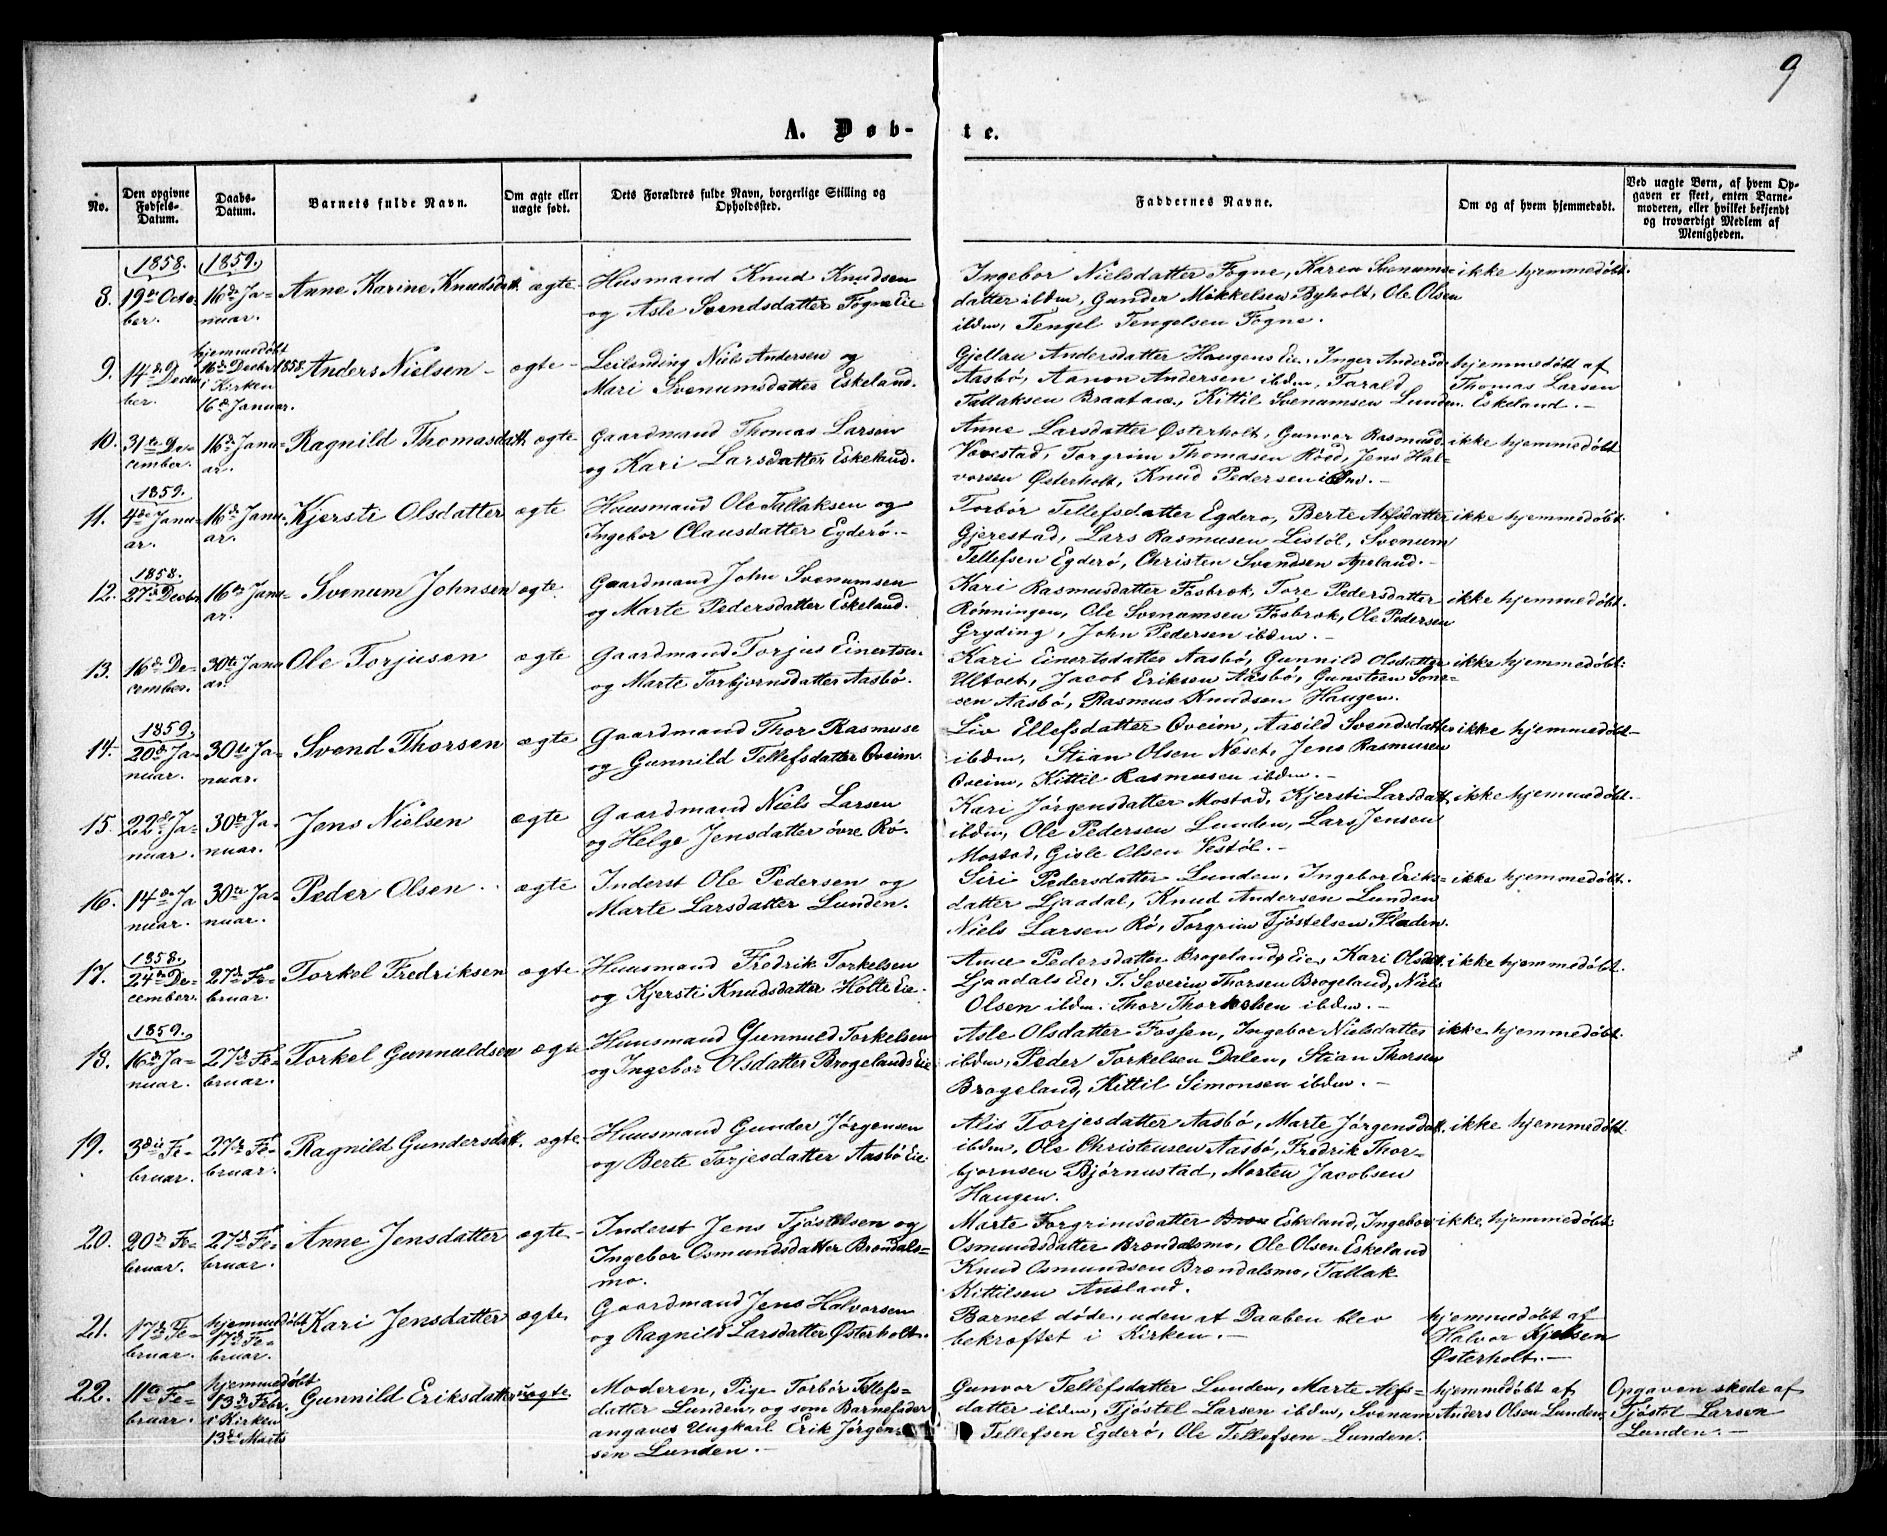 9
A. Døb-
te.
No.
Den opgivne Fødsels-Datum.
Daabs-Datum.
Barnets fulde Navn.
Om ægte eller uægte født.
Dets Forældres fulde Navn, borgerlige Stilling og Opholdssted.
Faddernes Navne.
Om og af hvem hjemmedøbt.
Ved uægte Børn, af hvem Opgaven er skeet, enten Barnemoderen, eller hvilket bekjendt og troværdigt Medlem af Menigheden.
1858. 1859.
8. 19de October. 16de Januar. Anne Karine Knudsdat. ægte
Husmand Knud Knudsen
og Asle Svendsdatter Fogne Eie
Ingebor Nielsdatter Fogne, Karen Svenums-
datter ibdm, Gunder Mökkelsen Byholt, Ole Olsen
ibdm, Tengel Tengelsen Fogne.
ikke hjemmedøbt.
9. 14de December. hjemmedøbt 16de Decbr. 1858 i Kirken 16de Januar. Anders Nielsen - ægte -
Leilending Niels Andersen og
Mari Svenumsdatter Eskeland.
Gjellau Andersdatter Haugens Eie, Inger Andersd.
Aasbö, Aanon Andersen ibdm, Tarald
Tallaksen Braatane, Kittil Svenumsen Lunden.
hjemmedøbt af
Thomas Larsen
Eskeland. -
10. 31te December. 16de Januar. Ragnild Thomasdatt. ægte
Gaardmand Thomas Larsen
og Kari Larsdatter Eskeland.
Anne Larsdatter Østerholt, Gunvor Rasmusd.
Vovestad, Torgrim Thomasen Röed, Jens Hal-
vorsen Østerholt, Knud Pedersen ibdm. -
ikke hjemmedøbt
1859.
11. 4de Januar. 16de Januar. Kjersti Olsdatter ægte
Huusmand Ole Tallaksen og
Ingebor Clausdatter Egderö. -
Torbör Tellefsdatter Egderö, Berte Alfsdatter
Gjerestad, Lars Rasmusen Listöl, Svenum
Tellefsen Egderö, Christen Svendsen Apeland. -
ikke hjemmedøbt.
1858.
12. 27de Decbr. 16de Januar. Svenum Johnsen ægte.
Gaardmand John Svenumsen
og Marte Pedersdatter Eskeland.
Kari Rasmusdatter Fosbrok, Tore Pedersdatter
Rönningen, Ole Svenumsen Fosbrok, Ole Pedersen
Gryding, John Pedersen ibdm. -
ikke hjemmedøbt.
13. 16de December. 30te Januar. Ole Torjusen ægte
Gaardmand Torjus Einertsen
og Marte Torbjornsdatter Aasbö.
Kari Einertsdatter Aasbö, Gunnild Olsdatter
Ultvet, Jacob Eriksen Aasbö, Gunsten Tone-
sen Aasbö, Rasmus Knudsen Haugen.
ikke hjemmedøbt.
1859.
14. 20de Januar. 30te Januar. Svend Thorsen ægte
Gaardmand Thor Rasmuse
og Gunnild Tellefsdatter Oveim.
Liv Ellefsdatter Oveim, Aasild Svendsdatter
ibdm, Stian Olsen Næset, Jens Rasmusen
Oveim, Kittil Rasmusen ibdm. -
ikke hjemmedøbt -
15. 22de Januar. 30te Januar. Jens Nielsen ægte
Gaardmand Niels Larsen
og Helge Jensdatter övre Rö.
Kari Jörgensdatter Mostad, Kjersti Larsdatt.
ibdm, Ole Pedersen Lunden, Lars Jensen
Mostad, Gisle Olsen Vestöl. -
ikke hjemmedøbt.
16. 14de Januar. 30te Januar. Peder Olsen ægte
Inderst Ole Pedersen og
Marte Larsdatter Lunden.
Siri Pedersdatter Lunden, Ingebor Eriks-
datter Ljaadal, Knud Andersen Lunden
Niels Larsen Rö, Torgrim Tjöstelsen Fladen.
ikke hjemmedøbt.
1858.
17. 24de December. 27de Februar. Torkel Fredriksen ægte
Huusmand Fredrik Torkelsen
og Kjersti Knudsdatter Holte Eie.
Anne Pedersdatter Brogelands Eie, Kari Olsdat.
Ljaadals Eie, T. Severin Thorsen Brogeland, Niels
Olsen ibdm. Thor Thorkelsen ibdm. -
ikke hjemmedøbt.
1859.
18. 16de Januar. 27de Februar. Torkel Gunnuldsen ægte
Huusmand Gunnuld Torkelsen
og Ingebor Olsdatter Brogelands Eie
Asle Olsdatter Fossen, Ingebor Nielsdatter
ibdm, Peder Torkelsen Dalen, Stian Thorsen
Brogeland, Kittil Simonsen ibdm. -
ikke hjemmedøbt.
19. 3die Februar. 27de Februar. Ragnild Gundersdatt. ægte.
Huusmand Gunder Jörgensen
og Berte Torjesdatter Aasbö Eie
Alis Torjesdatter Aasbö, Marte Jörgensdatt.
ibdm, Ole Christensen Aasbö, Fredrik Thor-
bjornsen Björnustad, Morten Jacobsen
Haugen.
ikke hjemmedøbt.
20. 20de Februar. 27de Februar. Anne Jensdatter ægte -
Inderst Jens Tjöstelsen og
Ingebor Osmundsdatter Brændals-
mo.
Marte Torgrimsdatter Eskeland, Ingebor
Osmundsdatter Brændalsmo, Ole Olsen Eskeland
Knud Osmundsen Brændalsmo, Tallak
Kittilsen Ausland.
ikke hjemmedøbt.
21. 17de Februar. hjemmedøbt 17de Februar. Kari Jensdatter ægte.
Gaardmand Jens Halvorsen
og Ragnild Larsdatter Østerholt.
Barnet døde, uden at Daaben blev
bekræftet i Kirken. -
hjemmedøbt af
Halvor Kjelsen
Østerholt. -
22. 11te Februar. hjemmedøbt 13de Febr. i Kirken 13de Marts Gunnild Eriksdatter uægte.
Moderen, Pige Torbör Tellefs-
datter Lunden, og som Barnefader
angaves Ungkarl Erik Jörgen-
sen Lunden. -
Gunvor Tellefsdatter Lunden, Marte Alfs-
datter ibdm, Tjöstel Larsen ibdm, Svenum
Tellefsen Egderö, Ole Tellefsen Lunden.
hjemmedøbt af
Anders Olsen Lunden.
Opgaven skede af
Tjöstel Larsen
Lunden. -